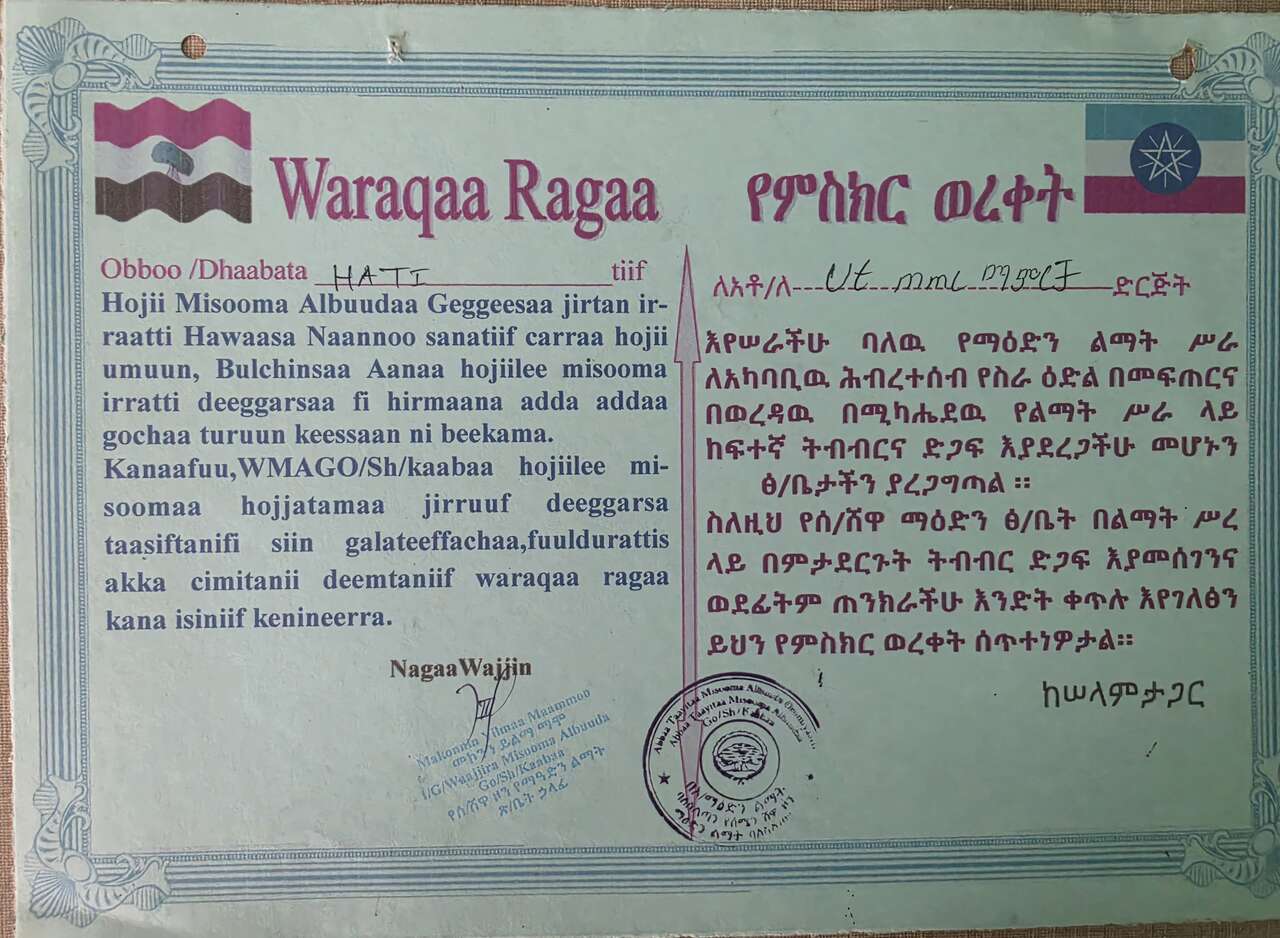 Waraqaa Ragaa
Obboo /Dhaabata HATI tiif
Hojii Misooma Albuudaa Geggeesaa jirtan ir-
raatti Hawaasa Naannoo sanatiif carraa hojii
umuun, Bulchinsaa Aanaa hojiilee misooma
irratti deeggarsaa fi hirmaana adda addaa
gochaa turuun keessaan ni beekama.
Kanaafuu,WMAGO/Sh/kaabaa hojiilee mi-
soomaa hojjatamaa jirruuf deeggarsa
taasiftanifi siin galateeffachaa,fuuldurattis
akka cimitanii deemtaniif waraqaa ragaa
kana isiniif kenineerra.
NagaaWajjin
Makonnin Yilmaa Maammoo
መኮንን ይልማ ማሞ
I/G/Waajjira Misooma Albuuda
Go/Sh/Kaabaa
የሰ/ሸዋ ዞን የማዕድን ልማት
ጽ/ቤት ኃላፊ
የምስክር ወረቀት
ለአቶ/ለ---- ሀቲ ጠጠር ማምረቻ ድርጅት
እየሠራችሁ ባለዉ የማዕድን ልማት ሥራ
ለአካባቢዉ ሕብረተሰብ የስራ ዕድል በመፍጠርና
በወረዳዉ በሚካሔደዉ የልማት ሥራ ላይ
ከፍተኛ ትብብርና ድጋፍ እያደረጋችሁ መሆኑን
ፅ/ቤታችን ያረጋግጣል ።
ስለዚህ የሰ/ሸዋ ማዕድን ፅ/ቤት በልማት ሥረ
ላይ በምታደርጉት ትብብር ድጋፍ እያመሰገንና
ወደፊትም ጠንክራችሁ እንድት ቀጥሉ እየገለፅን
ይህን የምስክር ወረቀት ሰጥተነዎታል።
ከሠላምታጋር
Abbaa Taayitaa Misooma Albuuda Oromiyaa
Abbaa Taayitaa Misooma Albuudaa
Go/Sh/Kaabaa